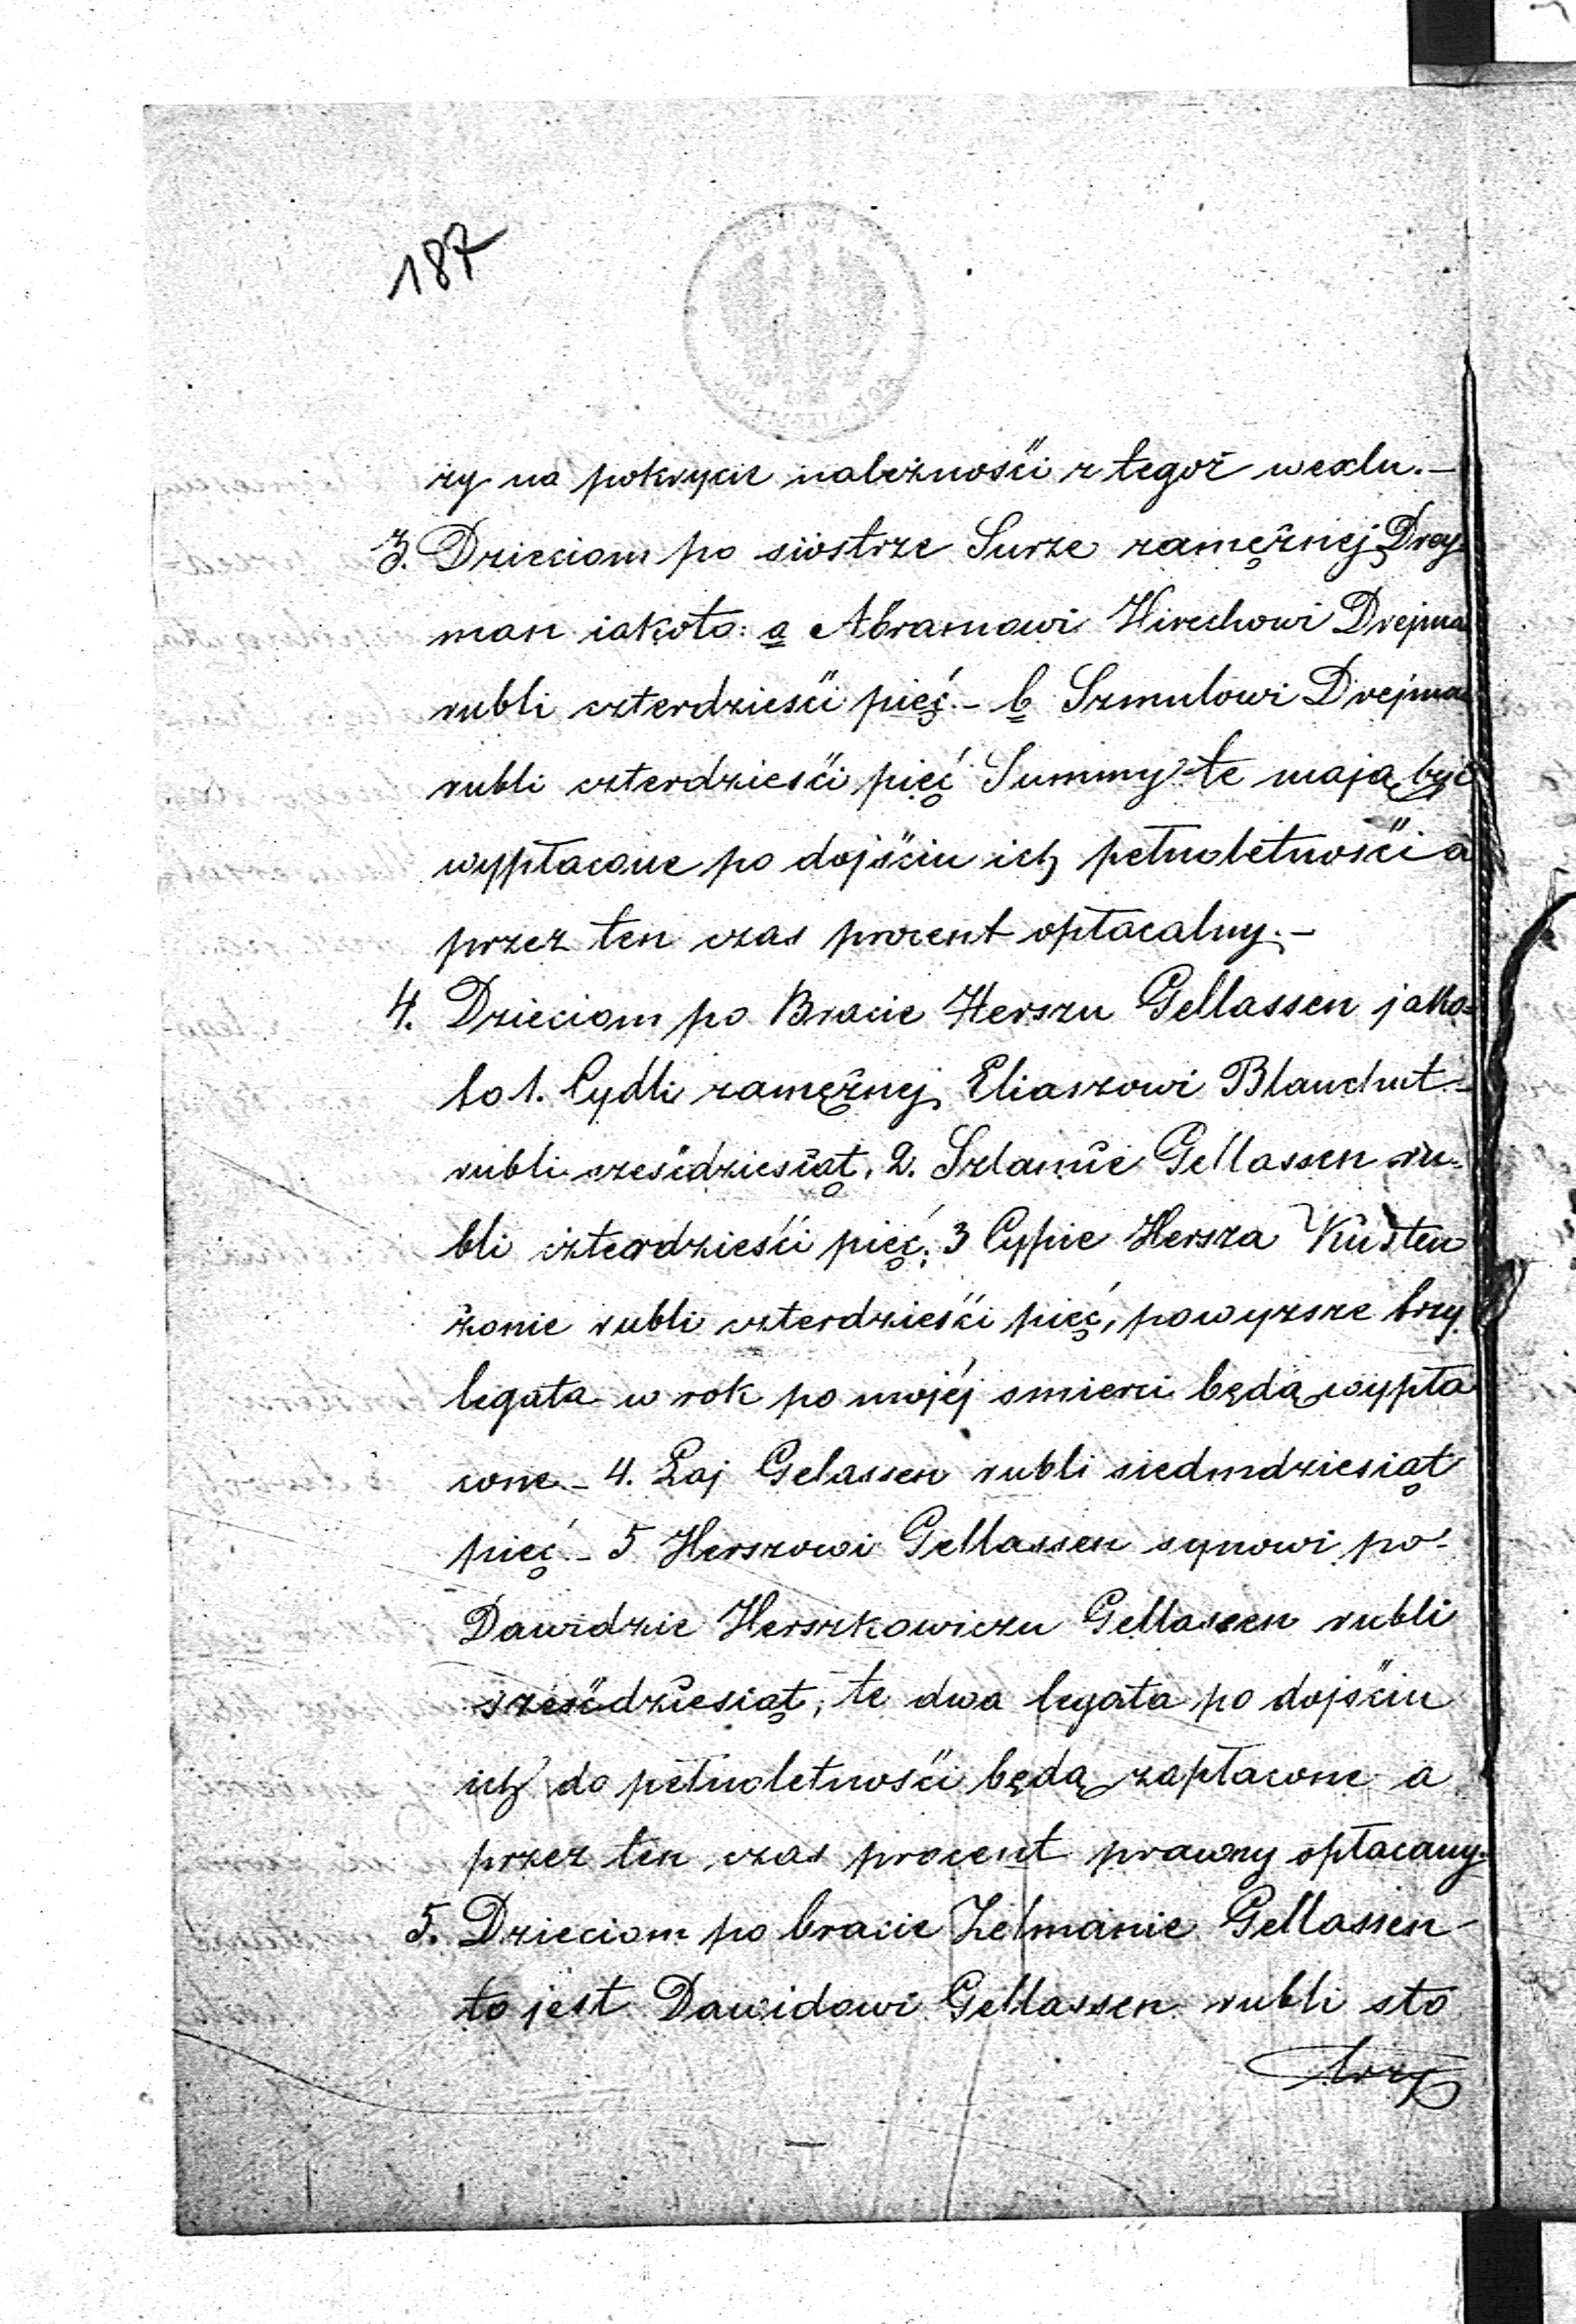 187
ży na pokrycie należności z tegoż wexlu.—
3. Dzieciom po siostrze Surze zamężnej Drey-
man iakoto: a Abramowi Hirschowi Drejma
rubli czterdzieści pięć.— b Szmulowi Drejma
rubli czterdzieści pięć Summy te mają być
wypłacone po dojściu ich pełnoletności a
przez ten czas procent opłacalny.—
4. Dzieciom po Bracie Herszu Gellassen jako=
to 1. Cydli zamężnej Eliaszowi Blauchut—
rubli sześćdziesiąt, 2. Szlamie Gellassen ru=
bli czterdzieści pięć, 3 Cypie Hersza Küsten
żonie rubli czterdzieści pięć, powyższe trzy
legata w rok po mojéj smierci będą wypła
cone.— 4. Laj Gelassen rubli siedmdziesiąt
pięć.— 5 Herszowi Gellassen synowi po-
Dawidzie Herszkowiczu Gellassen rubli
sześćdziesiąt, te dwa legata po dojściu
ich do pełnoletności będą zapłacone a
przez ten czas procent prawny opłacany.
5. Dzieciom po bracie Zelmanie Gellassen—
to jest Dawidowi Gellassen rubli sto
trzy